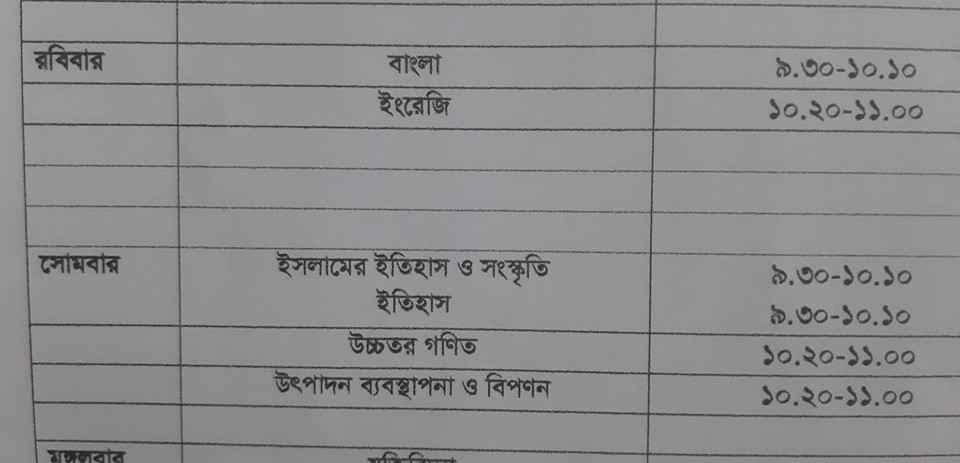 রবিবার বাংলা ৯.৩০-১০.১০
ইংরেজি ১০.২০-১১.০০
সোমবার ইসলামের ইতিহাস ও সংস্কৃতি ৯.৩০-১০.১০
ইতিহাস ৯.৩০-১০.১০
উচ্চতর গণিত ১০.২০-১১.০০
উৎপাদন ব্যবস্থাপনা ও বিপণন ১০.২০-১১.০০
মঙ্গলবার